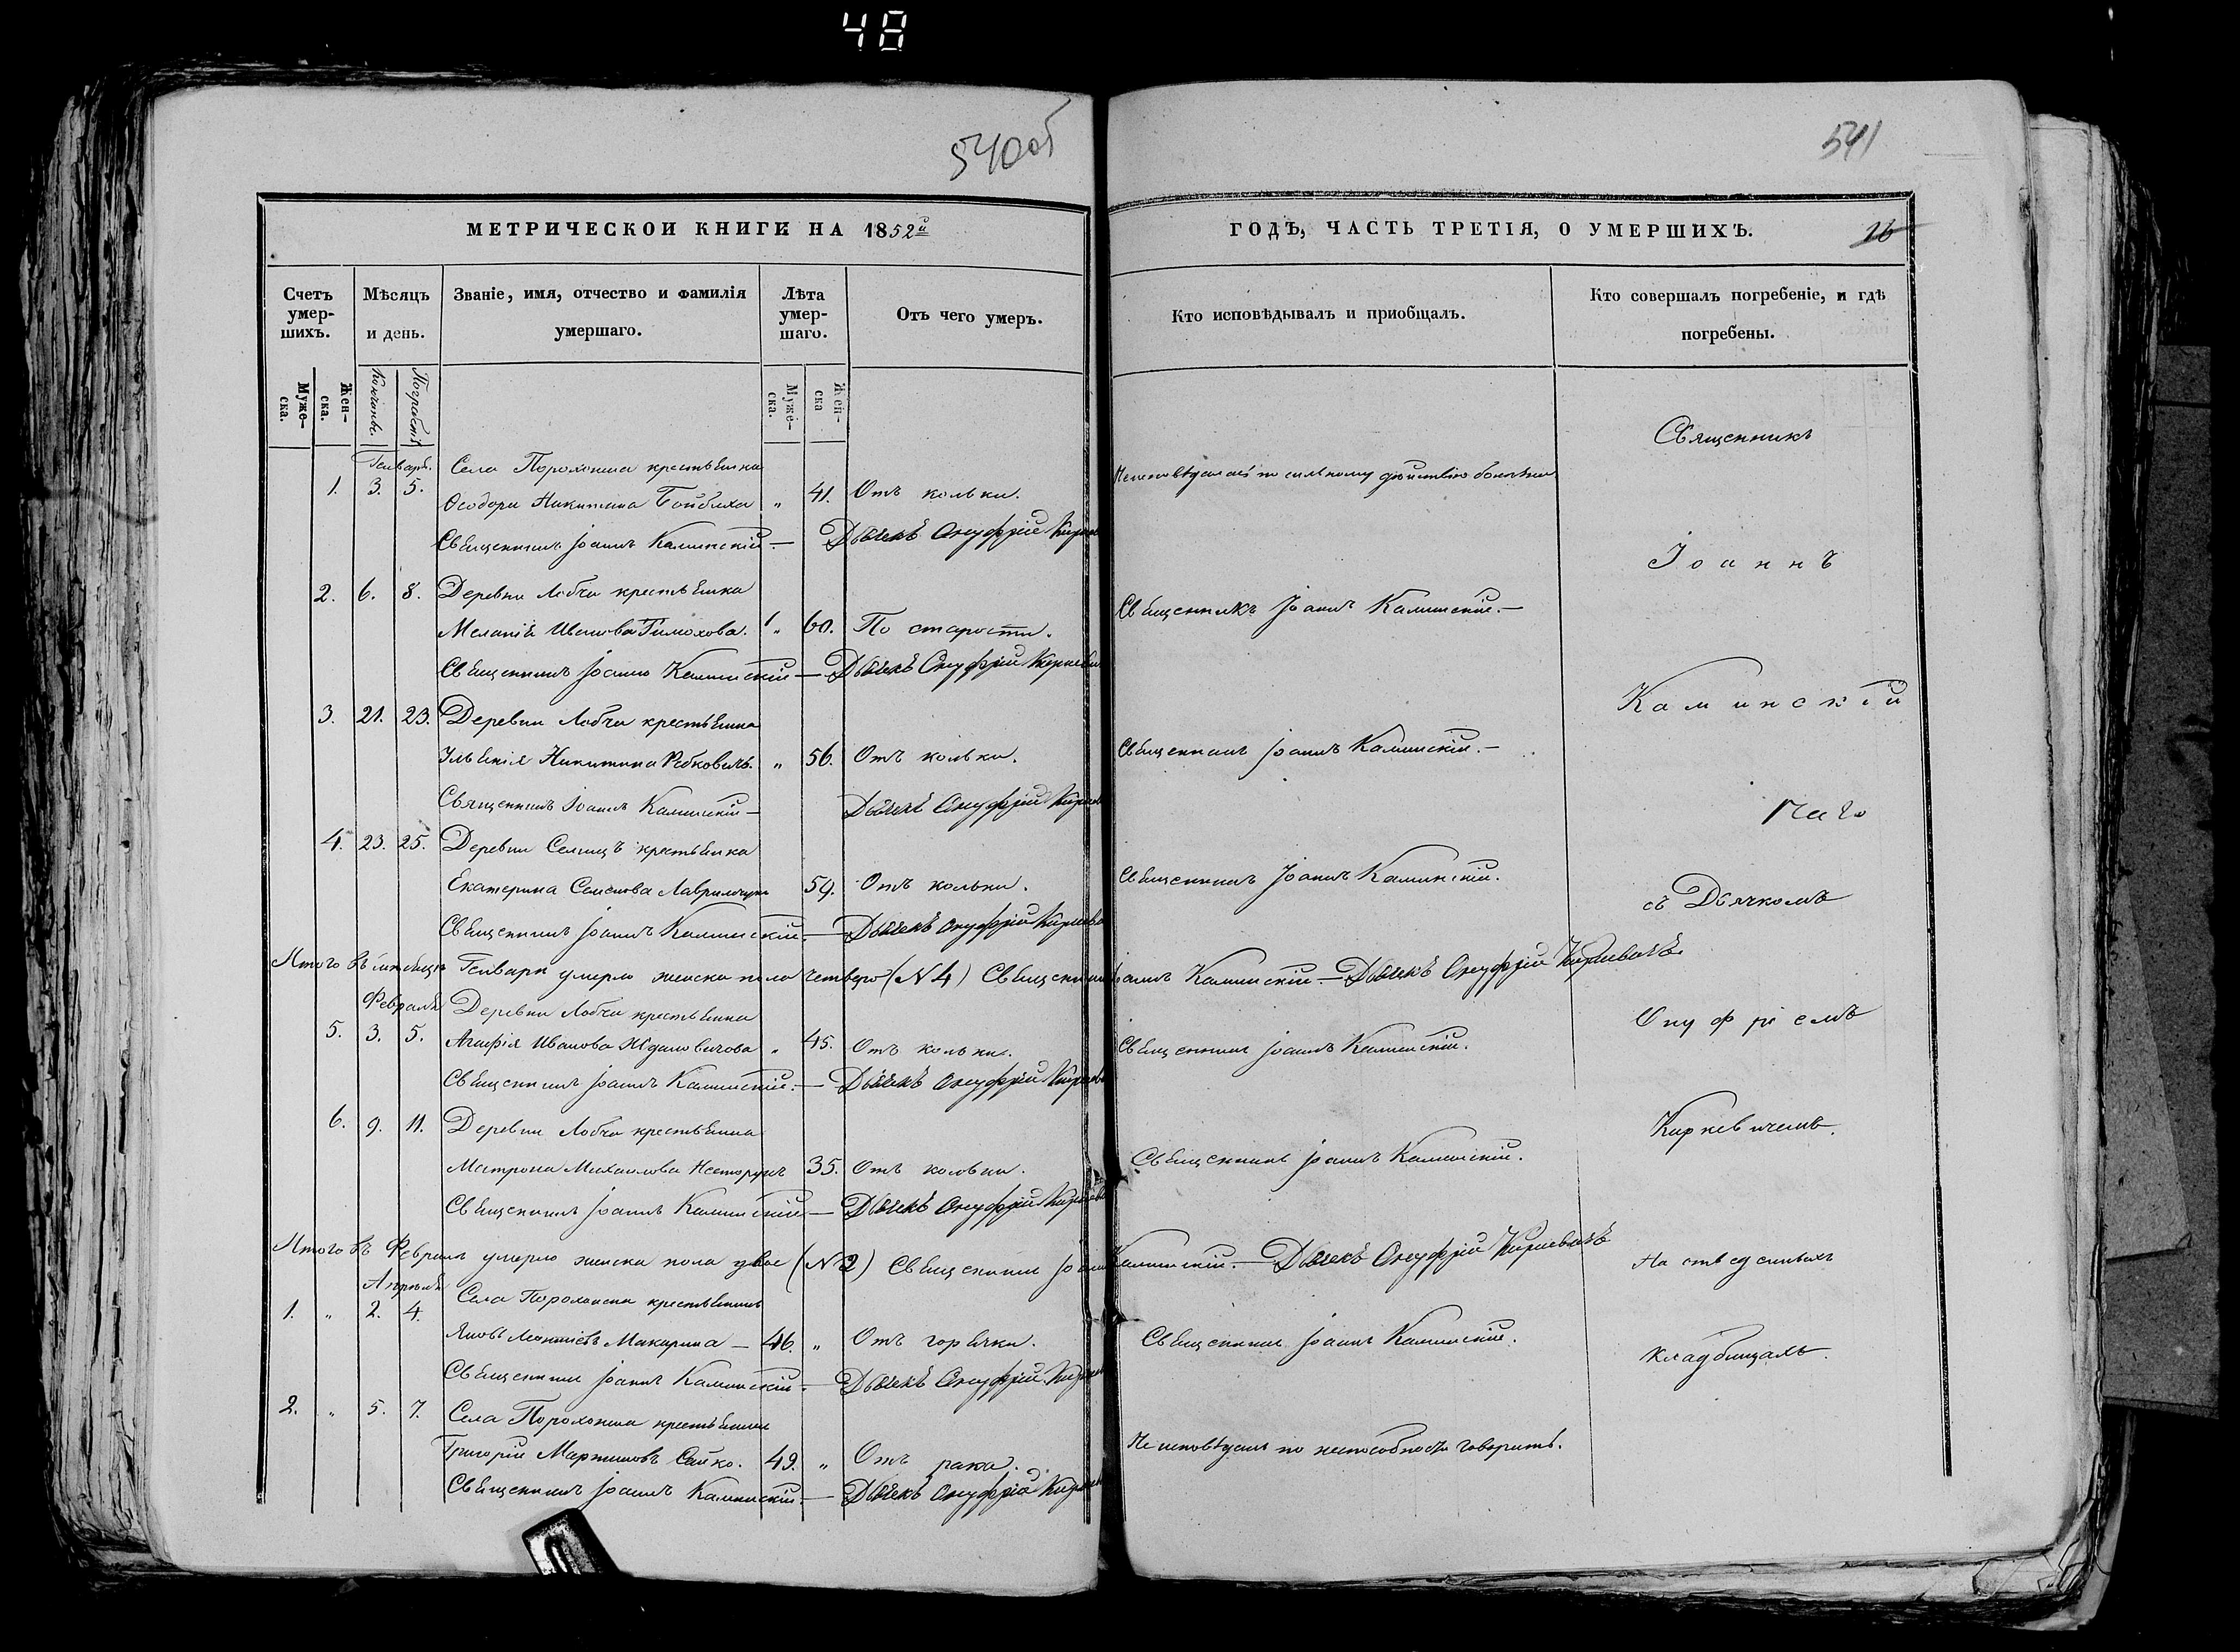 48
540об
541
МЕТРИЧЕСКОЙ КНИГИ НА 1852й
ГОДЪ, ЧАСТЬ ТРЕТІЯ, О УМЕРШИХЪ.
16
Счетъ умер-шихъ.
Мѣсяцъ и день.
Званіе, имя, отчество и фамилія умершаго.
Лѣта умер-шаго.
Отъ чего умеръ.
Кто исповѣдывалъ и приобщалъ.
Кто совершалъ погребеніе, и гдѣ погребены.
Муже-ска.
Жен-ска.
Кончины.
Погребенія
Муже-ска.
Жен-ска
Генваря.
Села Порохонска крестьянка
1. 3. 5.
Ѳеодора Никитина " 41. Отъ кольки.
Неисповѣдалась по сильному дѣйствію болѣзни
Священникъ Іоаннъ Каминскій. — Дьячекъ Онуфрій
2. 6. 8. Деревни Лобчи крестьянка
Меланія Иванова Тимохова. " 60. По старости.
Священникъ Іоаннъ Каминскій. —
Священникъ Іоаннъ Каминскій — Дьячекъ Онуфрій
3. 21. 23. Деревни Лобчи крестьянка
Никитина " 56. Отъ кольки.
Священникъ Іоаннъ Каминскій. —
Священникъ Іоаннъ Каминскій — Дьячекъ Онуфрій
4. 23. 25. Деревни Селищъ крестьянка
Екатерина Семенова 59. Отъ кольки.
Священникъ Іоаннъ Каминскій.
Священникъ Іоаннъ Каминскій. — Дьячекъ Онуфрій
Итого въ Генварѣ умерло женска пола четверо (N 4) Священникъ Іоаннъ Каминскій. — Дьячекъ Онуфрій Киркевичъ
Февраля
Деревни Лобчи крестьянка
5. 3. 5. Агафія Иванова Ждановичова " 45. Отъ кольки.
Священникъ Іоаннъ Каминскій.
Священникъ Іоаннъ Каминскій. — Дьячекъ Онуфрій
6. 9. 11. Деревни Лобчи крестьянка
Матрона Михайлова 35. Отъ кольки.
Священникъ Іоаннъ Каминскій.
Священникъ Іоаннъ Каминскій — Дьячекъ Онуфрій
Итого въ Февралѣ умерло женска пола двое (N 2) Священникъ Іоаннъ Каминскій. — Дьячекъ Онуфрій Киркевичъ
Апрѣля
Села Порохонска крестьянинъ
1. " 2. 4.
Яковъ Макарина — 46. " Отъ горячки.
Священникъ Іоаннъ Каминскій.
Священникъ Іоаннъ Каминскій. — Дьячекъ Онуфрій
2. " 5. 7. Села Порохонска крестьянинъ
Григорій Мартиновъ Сайко. 49. " Отъ рака.
Не исповѣданъ по неспособности говорить.
Священникъ Іоаннъ Каминскій. — Дьячекъ Онуфрій
Священникъ
Іоаннъ
Каминскій
съ Дьячкомъ
Онуфріемъ
Киркевичемъ.
На
кладбищахъ.